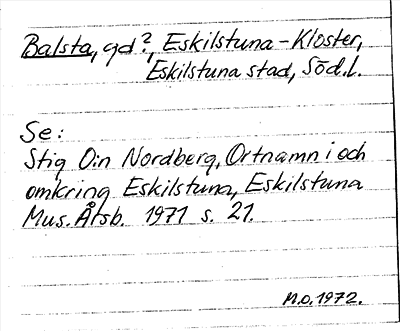 Balsta, gd?, Eskilstuna-Kloster,
Eskilstuna stad, Söd.l.
Se:
Stig O:n Nordberg, Ortnamn i och
omkring Eskilstuna, Eskilstuna
Mus. Årsb. 1971 s. 21.
M.O. 1972.